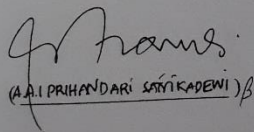 (A.A.I PRIHANDARI SATVIKADEWI)